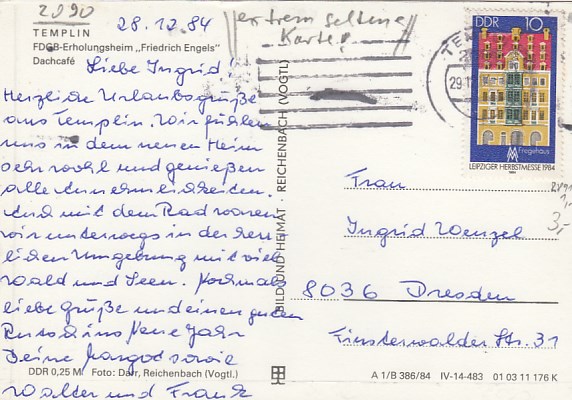 2090
28.12.84
"extrem seltene
Karte!"
TEMPLIN
FDGB-Erholungsheim „Friedrich Engels"
Dachcafé
Liebe Ingrid!
Herzliche Urlaubsgrüße
aus Templin. Wir fühlen
uns in dem neuen Heim
sehr wohl und genießen
alle Annehmlichkeiten.
Auch mit dem Rad waren
wir unterwegs in der herr
lichen Umgebung mit viel
Wald und Seen. Nochmals
liebe Grüße und einen guten
Rutsch ins Neue Jahr
Deine Margot sowie
Walter und Frank
DDR 0,25 M Foto: Darr, Reichenbach (Vogtl.)
BILD UND HEIMAT · REICHENBACH (VOGTL)
DDR 10
Fregehaus
MM
LEIPZIGER HERBSTMESSE 1984
TEM
29.12
Frau
Ingrid Wenzel
8036 Dresden
Finsterwalder Str. 31
3,-
A 1/B 386/84 IV-14-483 01 03 11 176 K